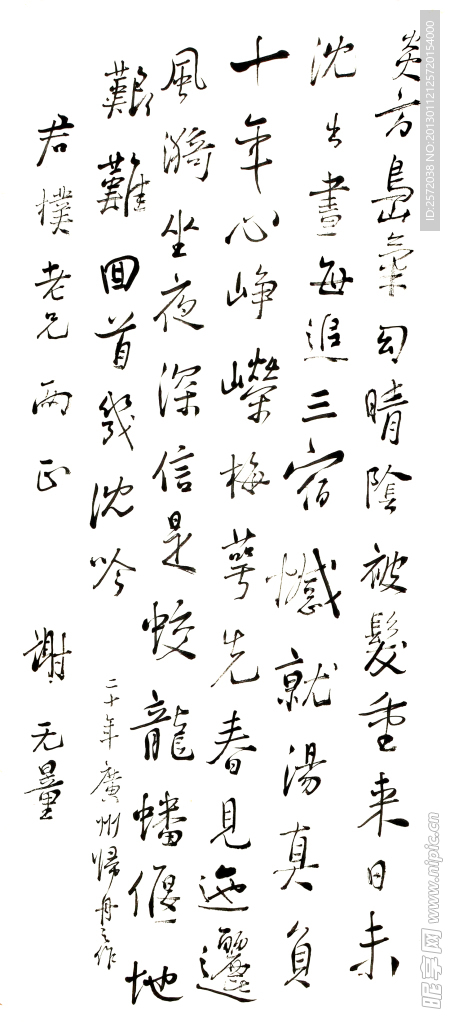 炎方島氣勻晴陰被髮重來日未
沈出晝每追三宿憾就湯真負
十年心崢嶸梅萼先春見迤邐
風漪坐夜深信是蛟龍蟠偃地
艱難回首幾沈吟
二十年廣州歸舟之作
君樸老兄兩正 謝无量
ID:2572038 NO:20130112125720154000
昵享网 www.nipic.cn